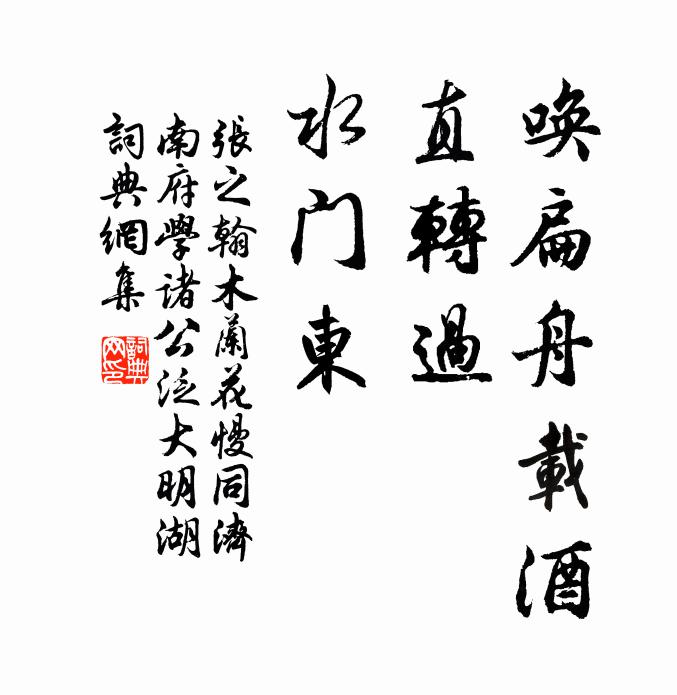 喚扁舟載酒
直轉過
水门東
張之翰木蘭花慢同濟
南府學诸公泛大明湖
詞典網集
詞典
网印